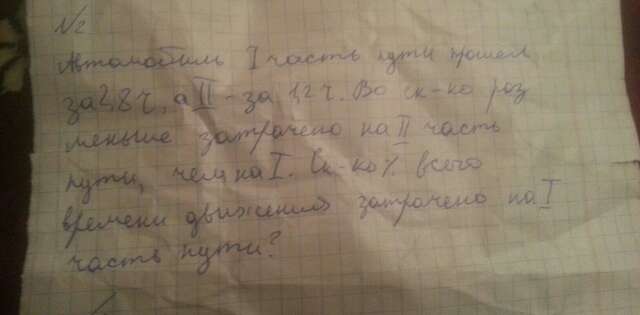 №2
Автомобиль I часть пути прошел
за 2,8 ч, а II - за 1,2 ч. Во ск-ко раз
меньше затрачено на II часть
пути, чем на I. Ск-ко % всего
времени движения затрачено на I
часть пути?